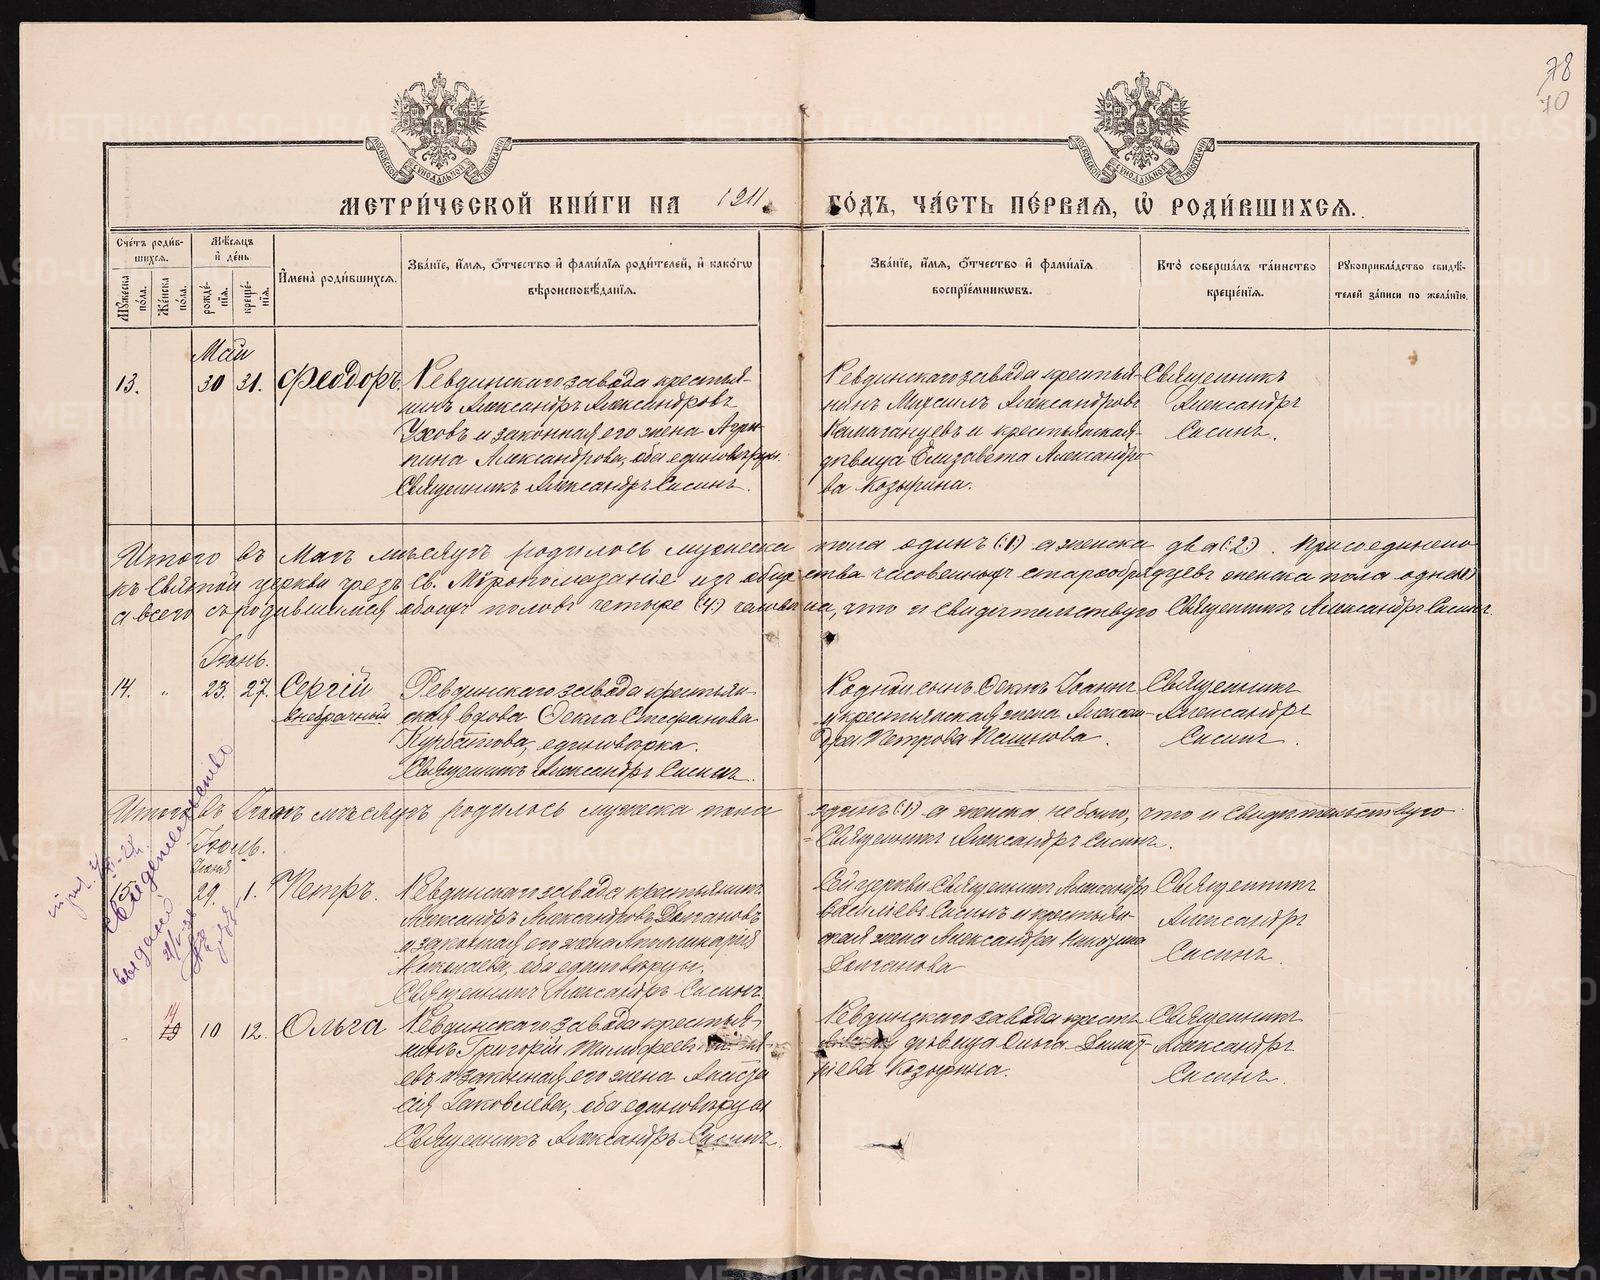 78
70
МОСКОВСКОЙ СѴНОДАЛЬНОЙ ТИПОГРАФІИ
МОСКОВСКОЙ СѴНОДАЛЬНОЙ ТИПОГРАФІИ
МЕТРИ́ЧЕСКОЙ КНИ́ГИ НА 1911 ГО́ДЪ, ЧА́СТЬ ПЕ́РВАЯ, Ѡ҆ РОДИ́ВШИХСЯ.
Сче́тъ роди́в-
шихся.
Мѣ́сяцъ
и҆ де́нь
Мꙋ́жеска по́ла.
Же́нска по́ла.
рожде́-
нїя.
креще́-
нїя.
И҆мена̀ роди́вшихся.
Зва́нїе, и҆́мя, ѻ҆́тчество и҆ фами́лїя роди́телей, и҆ како́гѡ
вѣроисповѣ́данїя.
Зва́нїе, и҆́мя, ѻ҆́тчество и҆ фами́лїя
воспрїе́мникѡвъ.
Кто̀ соверша́лъ та́инство
креще́нїя.
Рꙋкоприкла́дство свидѣ́-
телей за́писи по жела́нїю.
Май
13. 30 31. Ѳеодоръ Ревдинскаго завода крестья-
нинъ Александръ Александровъ
Ужовъ и законная его жена Агри-
пина Александрова, оба единовѣрцы.
Священникъ Александръ Сасинъ.
Ревдинскаго завода крестья-
нинъ Михаилъ Александровъ
и крестьянская
дѣвица Елизавета Александро-
ва Козырина.
Священникъ
Александръ
Сасинъ.
Итого въ Маѣ мѣсяцѣ родилось мужеска пола одинъ (:1) а женска два (:2:). Присоединено
къ святой церкви чрезъ св. Мѵропомазаніе изъ общества часовенныхъ старообрядцевъ женска пола одна
а всего съ родившимися обоихъ половъ четыре (4:) человѣка, что и свидѣтельствую Священникъ Александръ Сасинъ.
Іюнь.
14. " 23. 27. Сергій
внебрачный
Ревдинскаго завода крестьян-
ская вдова Ѳекла Стефанова
Курбатова, единовѣрка.
Священникъ Александръ Сасинъ.
Родной сынъ Ѳеклы Іоаннъ
и крестьянская жена Алексан-
дра Петрова
Священникъ
Александръ
Сасинъ.
Итого въ Іюнѣ мѣсяцѣ родилось мужеска пола одинъ (:1) а женска не было, что и свидѣтельствую
Священникъ Александръ Сасинъ.
Іюль.
Іюня
15. 29. 1. Петръ. Ревдинскаго завода крестьянинъ
Александръ Александровъ Долгановъ
и законная его жена Апполинарія
Николаева, оба единовѣрцы.
Священникъ Александръ Сасинъ.
Сей церкви Священникъ Александръ
Васильевъ Сасинъ и крестьян-
ская жена Александра
Долганова
Священникъ
Александръ
Сасинъ.
Свидетельство
выдано
14 10 12. Ольга Ревдинскаго завода крестья-
нинъ Григорій
евъ и законная его жена Анаста-
сія Іаковлева, оба единовѣрцы
Священникъ Александръ Сасинъ.
Ревдинскаго завода кресть-
дѣвица Ольга Димит-
ріева Козырина.
Священникъ
Александръ
Сасинъ.
METRIKI.GASO-URAL.RU